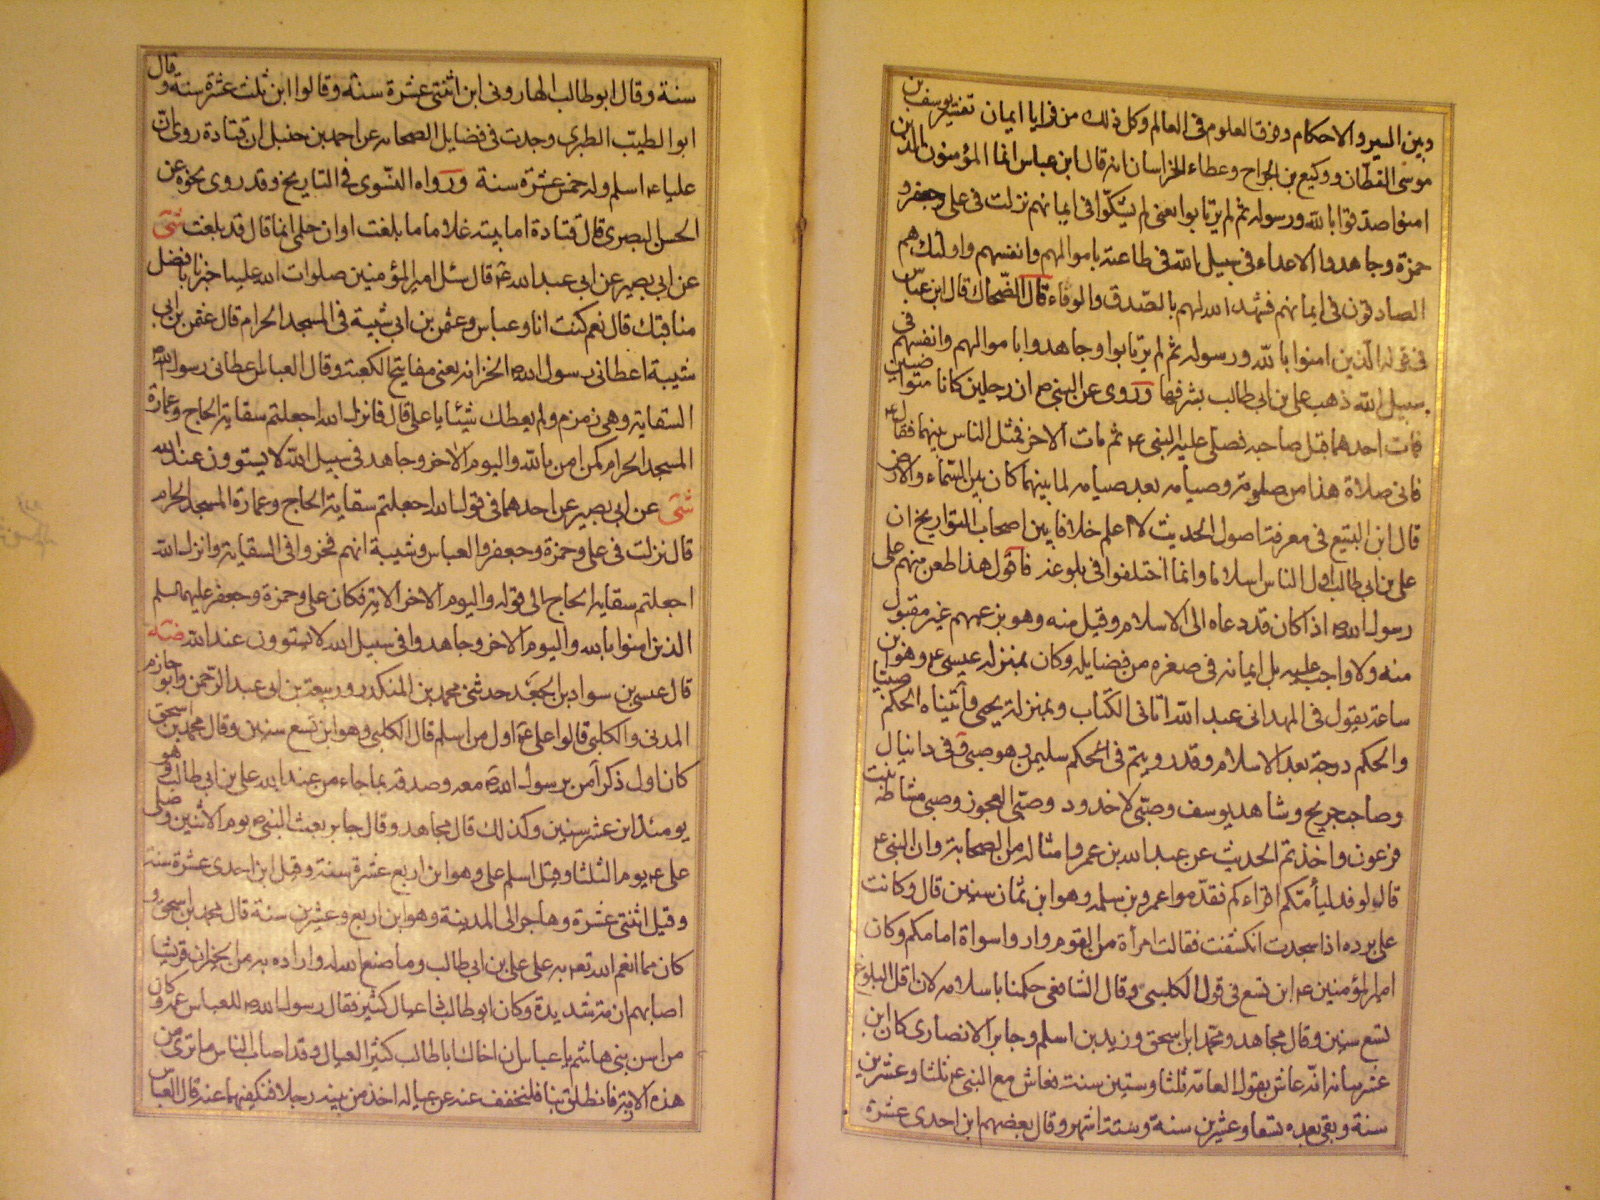 وبين السير والاحكام وفرق العلوم في العالم وكل ذلك من مزايا ايمان تفسير يوسف بن
موسى القطّان ووكيع بن الجراح وعطاء الخراسانى انه قال ابن عباس انما المؤمنون الذين
امنوا صدقوا بالله ورسوله ثم لم يرتابوا يعنى لم يشكّوا فى ايمانهم نزلت فى على وجعفر و
حمزة وجاهدوا الاعداء فى سبيل الله فى طاعته باموالهم وانفسهم واولئك هم
الصادقون فى ايمانهم فشهد الله لهم بالصّدق والوفاء قال الضّحاك قال ابن عباس
فى قوله الذين امنوا بالله ورسوله ثم لم يرتابوا وجاهدوا باموالهم وانفسهم فى
سبيل الله ذهب على بن ابى طالب بشرفها وروى عن النبى ص ان رجلين كانا متواخيين
فمات احدهما قبل صاحبه فصلى عليه النبى ع ثم مات الاخر فمثل الناس بينهما فقال ع
فاين صلاة هذا من صلوته وصيامه بعد صيامه لما بينهما كان بين السّماء والارض
قال ابن البيّع فى معرفة اصول الحديث لا اعلم خلافا بين اصحاب التواريخ ان
على بن ابى طالب اول الناس اسلاما وانما اختلفوا فى بلوغه فاقول هذا طعن منهم على
رسول الله اذا كان قد دعاه الى الاسلام وقبل منه وهو بزعمهم غير مقبول
منه ولا واجب عليه بل ايمانه فى صغره من فضايله وكان بمنزلة عيسى ع وهو ابن
ساعة يقول فى المهد انى عبد الله اتانى الكتاب وبمنزلة يحيى واتيناه الحكم صبيّا
والحكم درجة بعد الاسلام وقد رويتم فى الحكم سليمن وهو صبى وفى دانيال
وصاحب جريح وشاهد يوسف وصبّى الاخدود وصبّى العجوز وصبى مشاطة بنت
فرعون واخذتم الحديث عن عبد الله بن عمر وامثاله من الصحابة وان النبى ع
قال لوفد ليأمّكم اقراءكم فقدّموا عمرو بن سلمه وهو ابن ثمان سنين قال وكانت
على برده اذا سجدت انكشفت فقالت امرأة من القوم واروا سواة امامكم وكان
امير المؤمنين ع ابن تسع فى قول الكلبى وقال الشافعى حكمنا باسلامه لان اقل البلوغ
تسع سنين وقال مجاهد ومحمد ابن اسحق وزيد بن اسلم وجابر الانصارى كان ابن
عشر بيانه انّه عاش بقول العامّه ثلثا وستين سنة فعاش مع النبى ع ثلثا وعشرين
سنة وبقى بعده تسعا وعشرين سنة وستة اشهر وقال بعضهم ابن احدى عشرة
سنة وقال ابو طالب الهارونى ابن اثنتى عشرة سنة وقالوا ابن ثلث عشرة سنة وقال
ابو الطيب الطبرى وجدت فى فضايل الصحابه عن احمد بن حنبل ان قتادة روى انّ
عليا ع اسلم وله خمس عشرة سنة ورواه النسّوى فى التاريخ وقد روى نحوه عن
الحسن البصرى قال قتادة اما بيته غلاما ما بلغت اوان حلمى انما قال قد بلغت شى
عن ابى بصير عن ابى عبد الله ع قال سئل امير المؤمنين صلوات الله عليه اخبرنا بافضل
مناقبك قال نعم كنت انا وعباس وعثمن بن ابى شيبة فى المسجد الحرام قال عثمن بن ابى
شيبة اعطانى رسول الله الخزانه يعنى مفاتيح الكعبة وقال العباس اعطانى رسول الله
السقاية وهى زمزم ولم يعطك شيئا يا على قال فانزل الله اجعلتم سقاية الحاج وعمارة
المسجد الحرام كمن امن بالله واليوم الاخر وجاهد فى سبيل الله لا يستوون عند الله
شى عن ابى بصير عن احدهما فى قول الله اجعلتم سقاية الحاج وعمارة المسجد الحرام
قال نزلت فى على وحمزة وجعفر والعباس وشيبة انهم فخروا فى السقاية وانزل الله
اجعلتم سقاية الحاج الى قوله واليوم الاخر الاية فكان على وحمزة وجعفر عليهما السلم
الذين امنوا بالله واليوم الاخر وجاهدوا فى سبيل الله لا يستوون عند الله ضه
قال عيسى بن سواد بن الجعد حدثنى محمد بن المنكدر وربيعة بن ابو عبد الرحمن وابو حازم
المدنى والكلبى قالوا على ع اول من اسلم قال الكلبى وهو ابن تسع سنين وقال محمد بن اسحق
كان اول ذكر آمن برسول الله معه وصدقه بما جاء من عند الله على بن ابى طالب وهو
يومئذ ابن عشر سنين وكذلك قال مجاهد وقال جابر بعث النبى ص يوم الاثنين وصلى
على ع يوم الثلثا وقيل اسلم على وهو ابن اربع عشرة سنة وقيل ابن احدى عشرة سنة
وقيل اثنتى عشرة وهاجر الى المدينة وهو ابن اربع وعشرين سنة قال محمد بن اسحق و
كان مما انعم الله تعه به على على بن ابى طالب وما صنع الله له واراده به من الخير ان قريشا
اصابهم ازمة شديدة وكان ابو طالب ذا عيال كثير فقال رسول الله للعباس عمه وكان
من اسن بنى هاشم يا عباس ان اخاك ابا طالب كثير العيال وقد اصاب الناس ما ترى من
هذه الازمة فانطلق بنا فلنخفف عنه عن عياله اخذ من بيته رجلا فنكفيهما عنه قال العباس